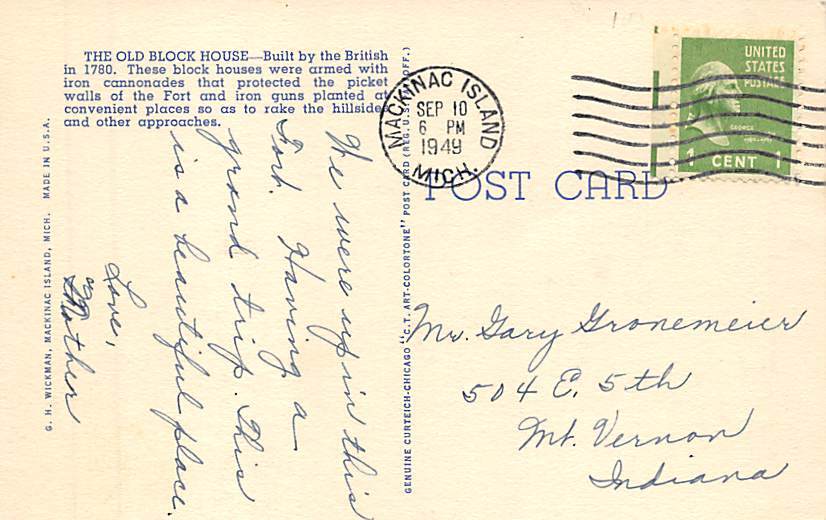 THE OLD BLOCK HOUSE—Built by the British
in 1780. These block houses were armed with
iron cannonades that protected the picket
walls of the Fort and iron guns planted at
convenient places so as to rake the hillside
and other approaches.
We were up in this
Fort. Having a
grand trip. This
is a beautiful place.
Love,
Mother
G. H. WICKMAN, MACKINAC ISLAND, MICH. MADE IN U.S.A.
GENUINE CURTEICH-CHICAGO "C.T. ART-COLORTONE" POST CARD (REG. U.S. PAT. OFF.)
MACKINAC ISLAND
SEP 10
6 PM
1949
MICH.
UNITED
STATES
POSTAGE
GEORGE
1 CENT 1
POST CARD
Mr. Gary Gronemeier
504 E. 5th
Mt. Vernon
Indiana